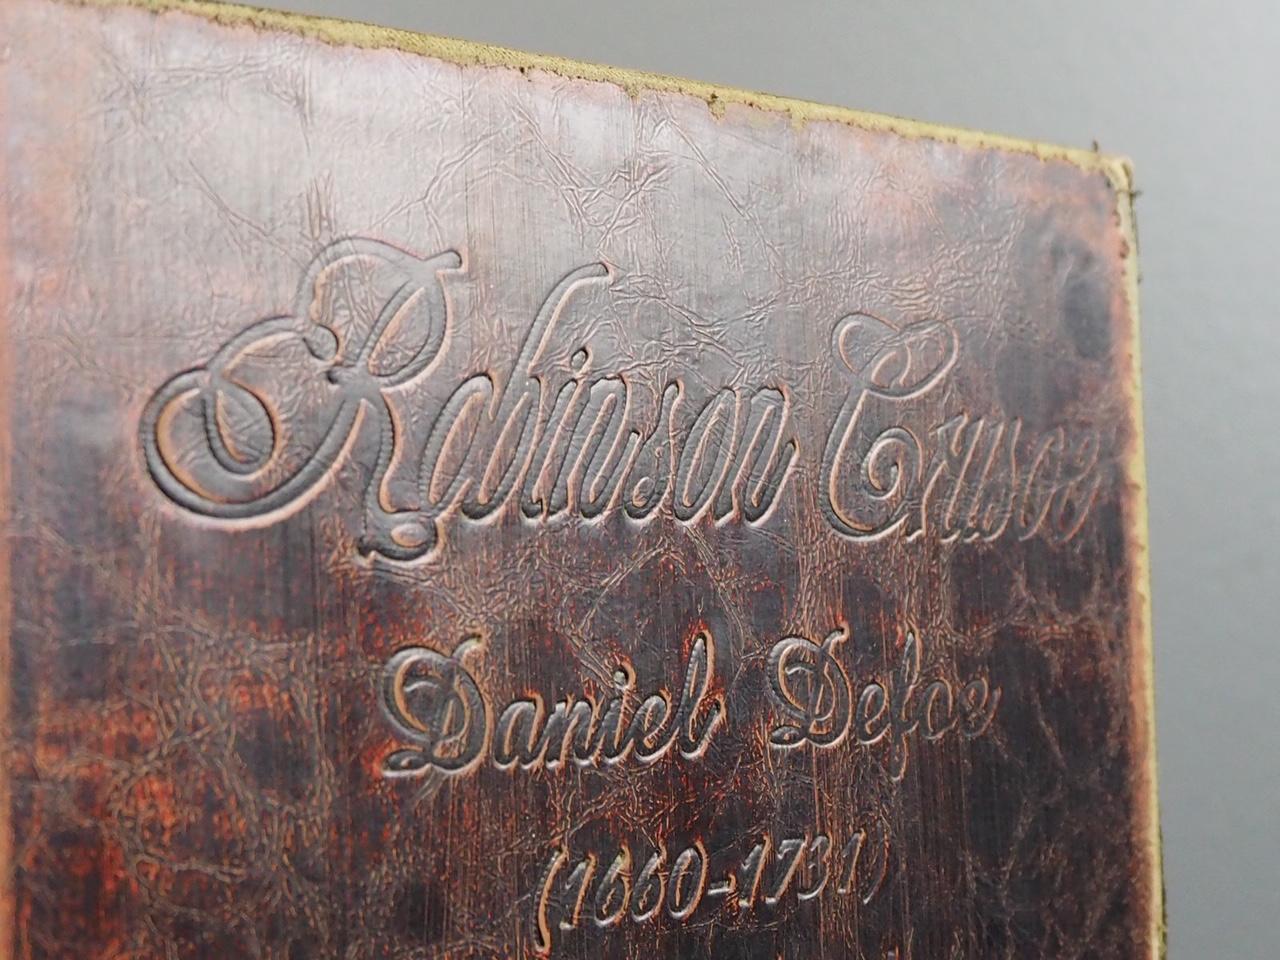 Robinson Crusoe
Daniel Defoe
(1660-1731)